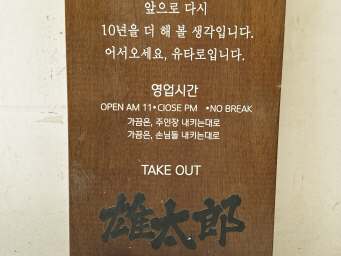 앞으로 다시
10년을 더 해 볼 생각입니다.
어서오세요, 유타로입니다.
영업시간
OPEN AM 11•ClOSE PM •NO BREAK
가끔은, 주인장 내키는대로
가끔은, 손님들 내키는대로
TAKE OUT
雄太郎